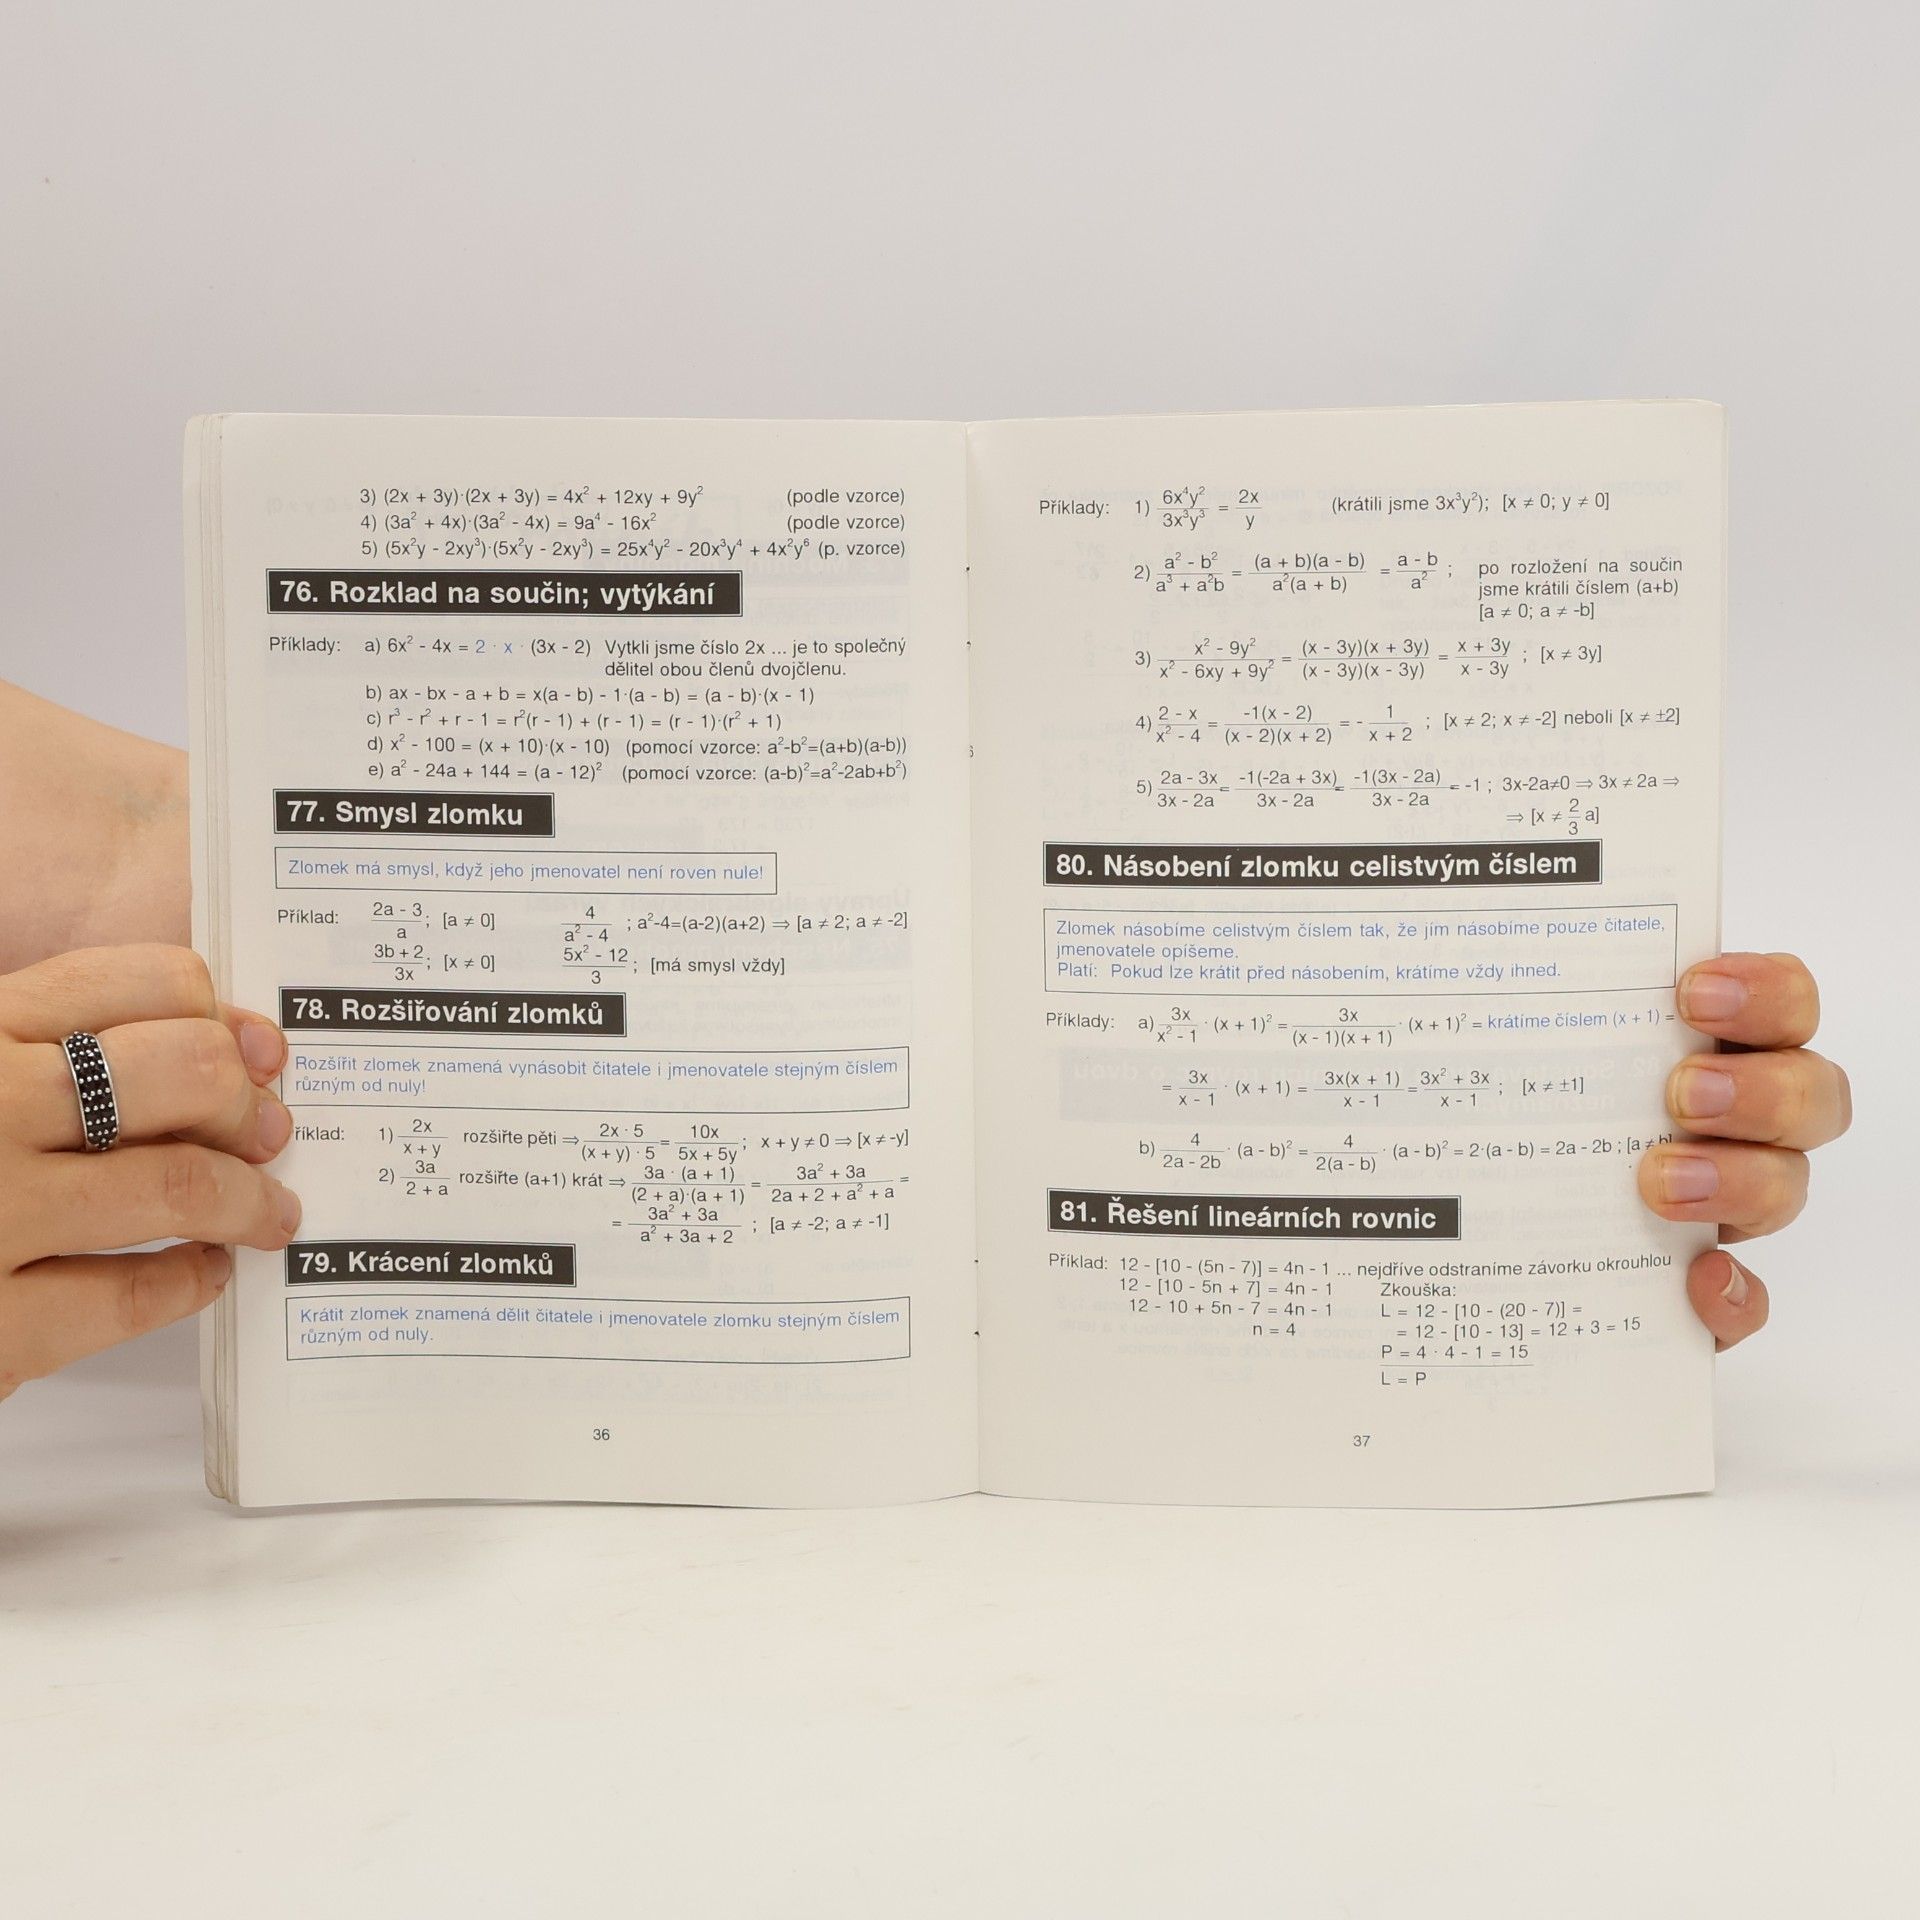 3) (2x + 3y)·(2x + 3y) = 4x² + 12xy + 9y² (podle vzorce)
4) (3a² + 4x)·(3a² - 4x) = 9a⁴ - 16x² (podle vzorce)
5) (5x²y - 2xy³)·(5x²y - 2xy³) = 25x⁴y² - 20x³y⁴ + 4x²y⁶ (p. vzorce)
76. Rozklad na součin; vytýkání
Příklady: a) 6x² - 4x = 2 · x · (3x - 2) Vytkli jsme číslo 2x ... je to společný
dělitel obou členů dvojčlenu.
b) ax - bx - a + b = x(a - b) - 1·(a - b) = (a - b)·(x - 1)
c) r³ - r² + r - 1 = r²(r - 1) + (r - 1) = (r - 1)·(r² + 1)
d) x² - 100 = (x + 10)·(x - 10) (pomocí vzorce: a²-b²=(a+b)(a-b))
e) a² - 24a + 144 = (a - 12)² (pomocí vzorce: (a-b)²=a²-2ab+b²)
77. Smysl zlomku
Zlomek má smysl, když jeho jmenovatel není roven nule!
Příklad: (2a - 3)/a; [a ≠ 0] 4/(a² - 4) ; a²-4=(a-2)(a+2) ⇒ [a ≠ 2; a ≠ -2]
(3b + 2)/3x; [x ≠ 0] (5x² - 12)/3 ; [má smysl vždy]
78. Rozšiřování zlomků
Rozšířit zlomek znamená vynásobit čitatele i jmenovatele stejným číslem
různým od nuly!
říklad: 1) 2x/(x + y) rozšiřte pěti ⇒ (2x · 5)/((x + y) · 5) = 10x/(5x + 5y) ; x + y ≠ 0 ⇒ [x ≠ -y]
2) 3a/(2 + a) rozšiřte (a+1) krát ⇒ (3a · (a + 1))/((2 + a)·(a + 1)) = (3a² + 3a)/(2a + 2 + a² + a) =
= (3a² + 3a)/(a² + 3a + 2) ; [a ≠ -2; a ≠ -1]
79. Krácení zlomků
Krátit zlomek znamená dělit čitatele i jmenovatele zlomku stejným číslem
různým od nuly.
36
Příklady: 1) 6x⁴y²/3x³y³ = 2x/y (krátili jsme 3x³y²); [x ≠ 0; y ≠ 0]
2) (a² - b²)/(a³ + a²b) = ((a + b)(a - b))/(a²(a + b)) = (a - b)/a² ; po rozložení na součin
jsme krátili číslem (a+b)
[a ≠ 0; a ≠ -b]
3) (x² - 9y²)/(x² - 6xy + 9y²) = ((x - 3y)(x + 3y))/((x - 3y)(x - 3y)) = (x + 3y)/(x - 3y) ; [x ≠ 3y]
4) (2 - x)/(x² - 4) = (-1(x - 2))/((x - 2)(x + 2)) = - 1/(x + 2) ; [x ≠ 2; x ≠ -2] neboli [x ≠ ±2]
5) (2a - 3x)/(3x - 2a) = (-1(-2a + 3x))/(3x - 2a) = (-1(3x - 2a))/(3x - 2a) = -1 ; 3x-2a≠0 ⇒ 3x ≠ 2a ⇒
⇒ [x ≠ 2/3 a]
80. Násobení zlomku celistvým číslem
Zlomek násobíme celistvým číslem tak, že jím násobíme pouze čitatele,
jmenovatele opíšeme.
Platí: Pokud lze krátit před násobením, krátíme vždy ihned.
Příklady: a) 3x/(x² - 1) · (x + 1)² = 3x/((x - 1)(x + 1)) · (x + 1)² = krátíme číslem (x + 1) =
= 3x/(x - 1) · (x + 1) = (3x(x + 1))/(x - 1) = (3x² + 3x)/(x - 1) ; [x ≠ ±1]
b) 4/(2a - 2b) · (a - b)² = 4/(2(a - b)) · (a - b)² = 2·(a - b) = 2a - 2b ; [a ≠ b]
81. Řešení lineárních rovnic
Příklad: 12 - [10 - (5n - 7)] = 4n - 1 ... nejdříve odstraníme závorku okrouhlou
12 - [10 - 5n + 7] = 4n - 1 Zkouška:
12 - 10 + 5n - 7 = 4n - 1 L = 12 - [10 - (20 - 7)] =
n = 4 = 12 - [10 - 13] = 12 + 3 = 15
P = 4 · 4 - 1 = 15
L = P
37